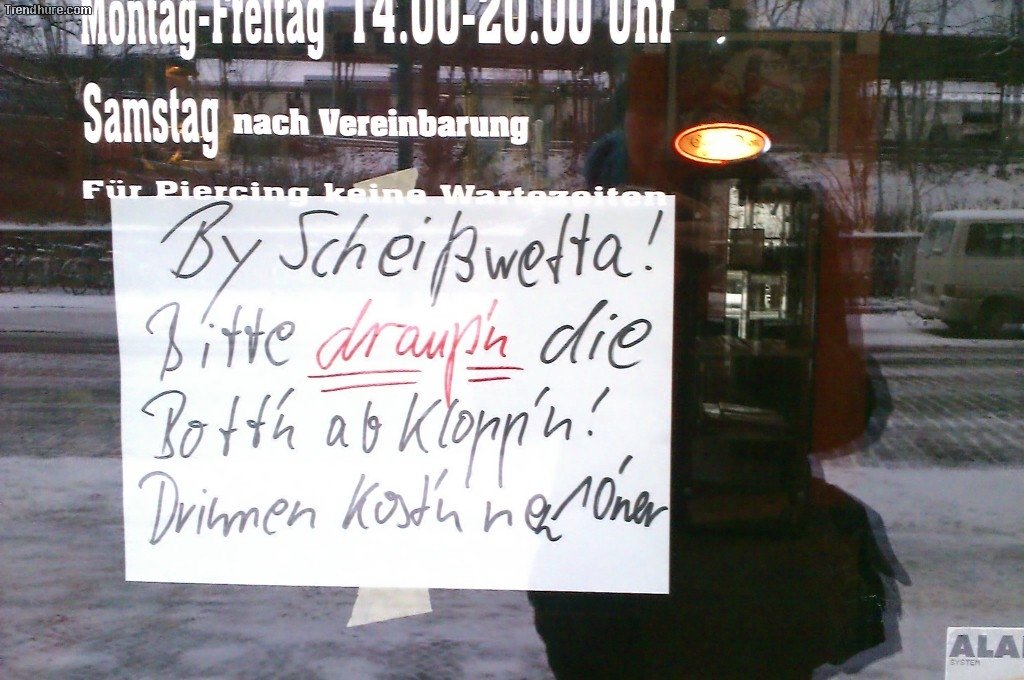 Trendhure.com
Montag-Freitag 14.00-20.00 Uhr
Samstag nach Vereinbarung
Für Piercing keine Wartezeiten
By Scheißwetta!
Bitte drauß'n die
Bott'n ab klopp'n!
Drinnen kost'n 'n 10ner
ALA
SYSTEM